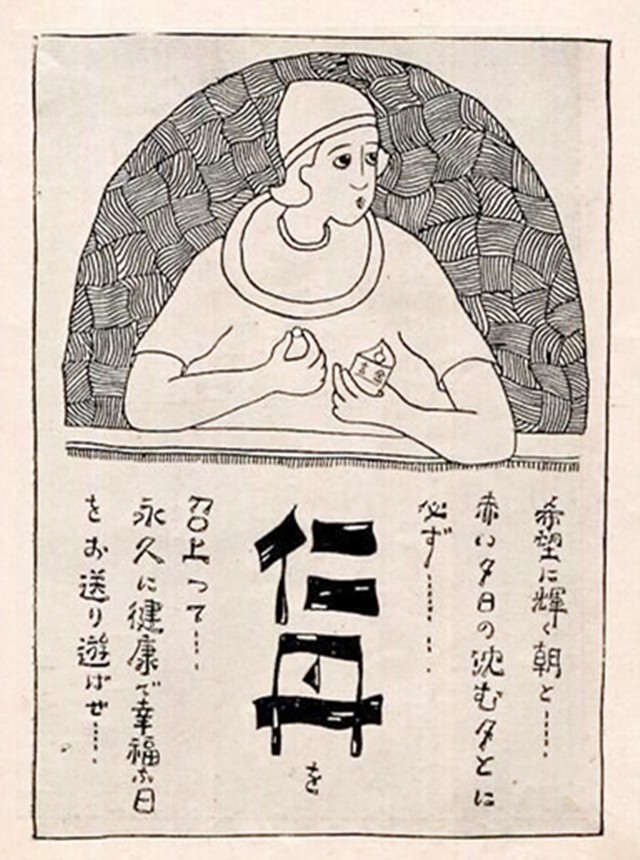 希望に輝く朝と……
赤い夕日の沈む夕とに
必ず……
仁丹を
召上って……
永久に健康で幸福な日
をお送り遊ばせ……